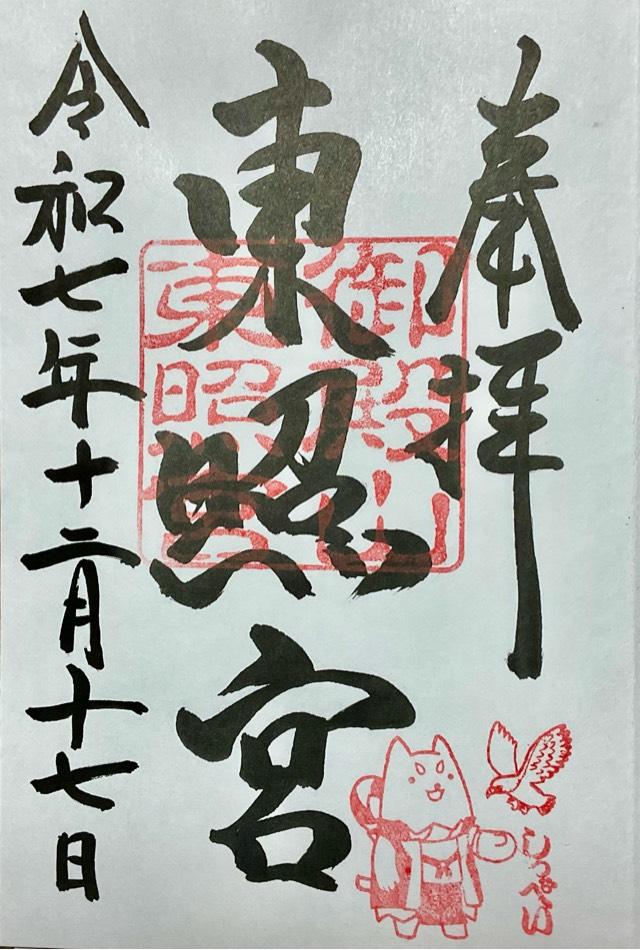 奉拝
東照宮
御殿山
東照宮
令和七年十二月十七日